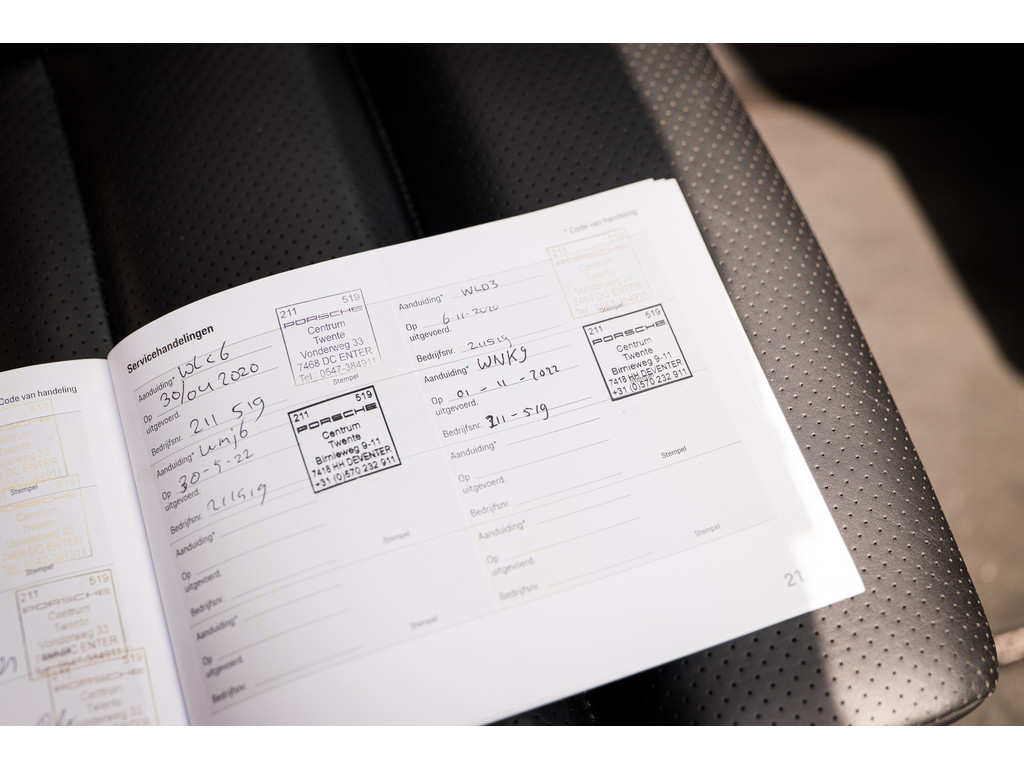 Code van handeling
Stempel
Centrum
Twente
Stempel
211 519
PORSCHE
Centrum
Twente
Vonderweg 33
7468 DC ENTER
PORSCHE
Centrum
Twente
Vonderweg 33
7468 DC ENTER
Servicehandelingen
Aanduiding* WLC6
Op 30/04 2020
uitgevoerd.
Bedrijfsnr. 211 519
211 519
PORSCHE
Centrum
Twente
Vonderweg 33
7468 DC ENTER
Tel.: 0547-384911
Stempel
Aanduiding* WMJ6
Op 30-5-22
uitgevoerd.
Bedrijfsnr. 211519
211 519
PORSCHE
Centrum
Twente
Birnieweg 9-11
7418 HH DEVENTER
+31 (0)570 232 911
Aanduiding*
Op
uitgevoerd.
Bedrijfsnr.
Stempel
Aanduiding*
Op
uitgevoerd.
Bedrijfsnr.
Stempel
* Code van handeling
Aanduiding* WLD3
Op 6-11-2020
uitgevoerd.
Bedrijfsnr. 211519
211
PORSCHE
Centrum
Twente
Vonderweg 33
7468 DC ENTER
Stempel
Aanduiding* WNK9
Op 01-11-2022
uitgevoerd.
Bedrijfsnr. 211-519
211 519
PORSCHE
Centrum
Twente
Birnieweg 9-11
7418 HH DEVENTER
+31 (0)570 232 911
Aanduiding*
Op
uitgevoerd.
Bedrijfsnr.
Stempel
Aanduiding*
Op
uitgevoerd.
Bedrijfsnr.
Stempel
21